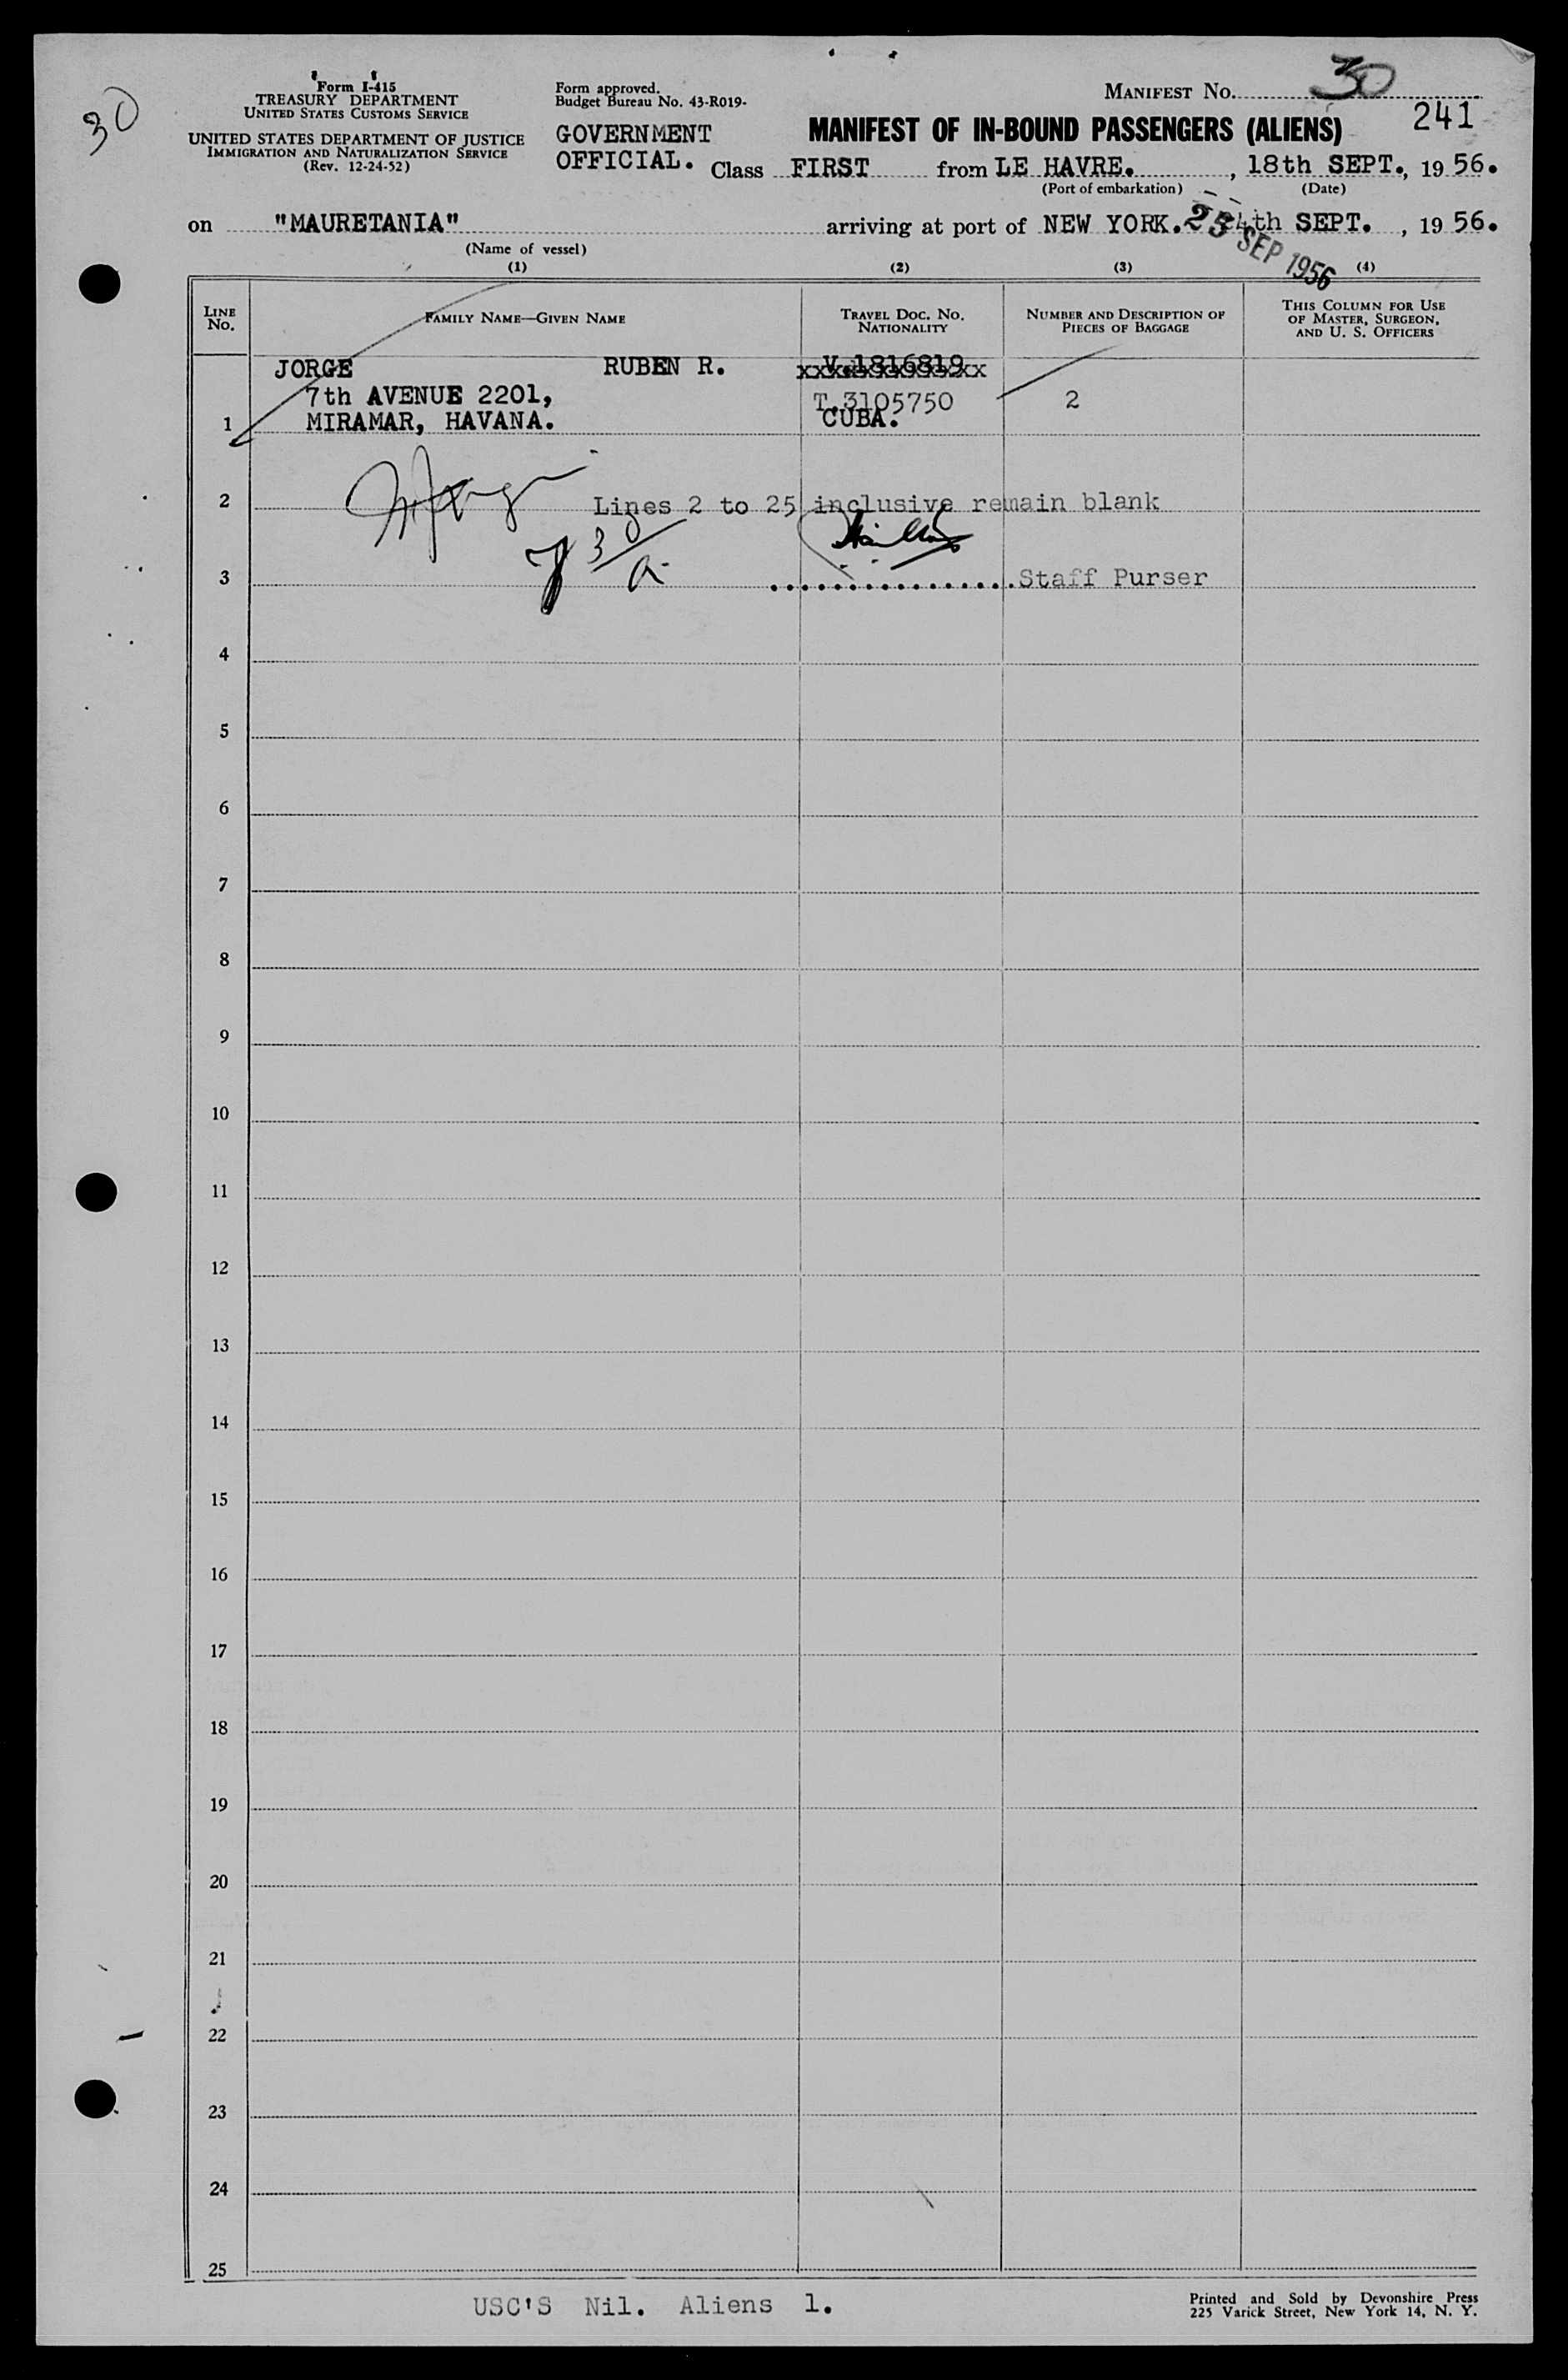 30
Form I-415
TREASURY DEPARTMENT
UNITED STATES CUSTOMS SERVICE
UNITED STATES DEPARTMENT OF JUSTICE
IMMIGRATION AND NATURALIZATION SERVICE
(Rev. 12-24-52)
Form approved.
Budget Bureau No. 43-R019-
GOVERNMENT
OFFICIAL.
MANIFEST NO. 30
241
MANIFEST OF IN-BOUND PASSENGERS (ALIENS)
Class FIRST from LE HAVRE. , 18th SEPT., 19 56.
(Port of embarkation) (Date)
on "MAURETANIA" arriving at port of NEW YORK. 24th SEPT. , 19 56.
25 SEP 1956
(Name of vessel)
(1) (2) (3) (4)
LINE NO. FAMILY NAME—GIVEN NAME TRAVEL DOC. NO. NATIONALITY NUMBER AND DESCRIPTION OF PIECES OF BAGGAGE THIS COLUMN FOR USE OF MASTER, SURGEON, AND U. S. OFFICERS
JORGE RUBEN R. V.1816819
7th AVENUE 2201, T.3105750 2
1 MIRAMAR, HAVANA. CUBA.
2 Lines 2 to 25 inclusive remain blank
30
3 Staff Purser
4
5
6
7
8
9
10
11
12
13
14
15
16
17
18
19
20
21
22
23
24
25
USC'S Nil. Aliens 1.
Printed and Sold by Devonshire Press
225 Varick Street, New York 14, N. Y.